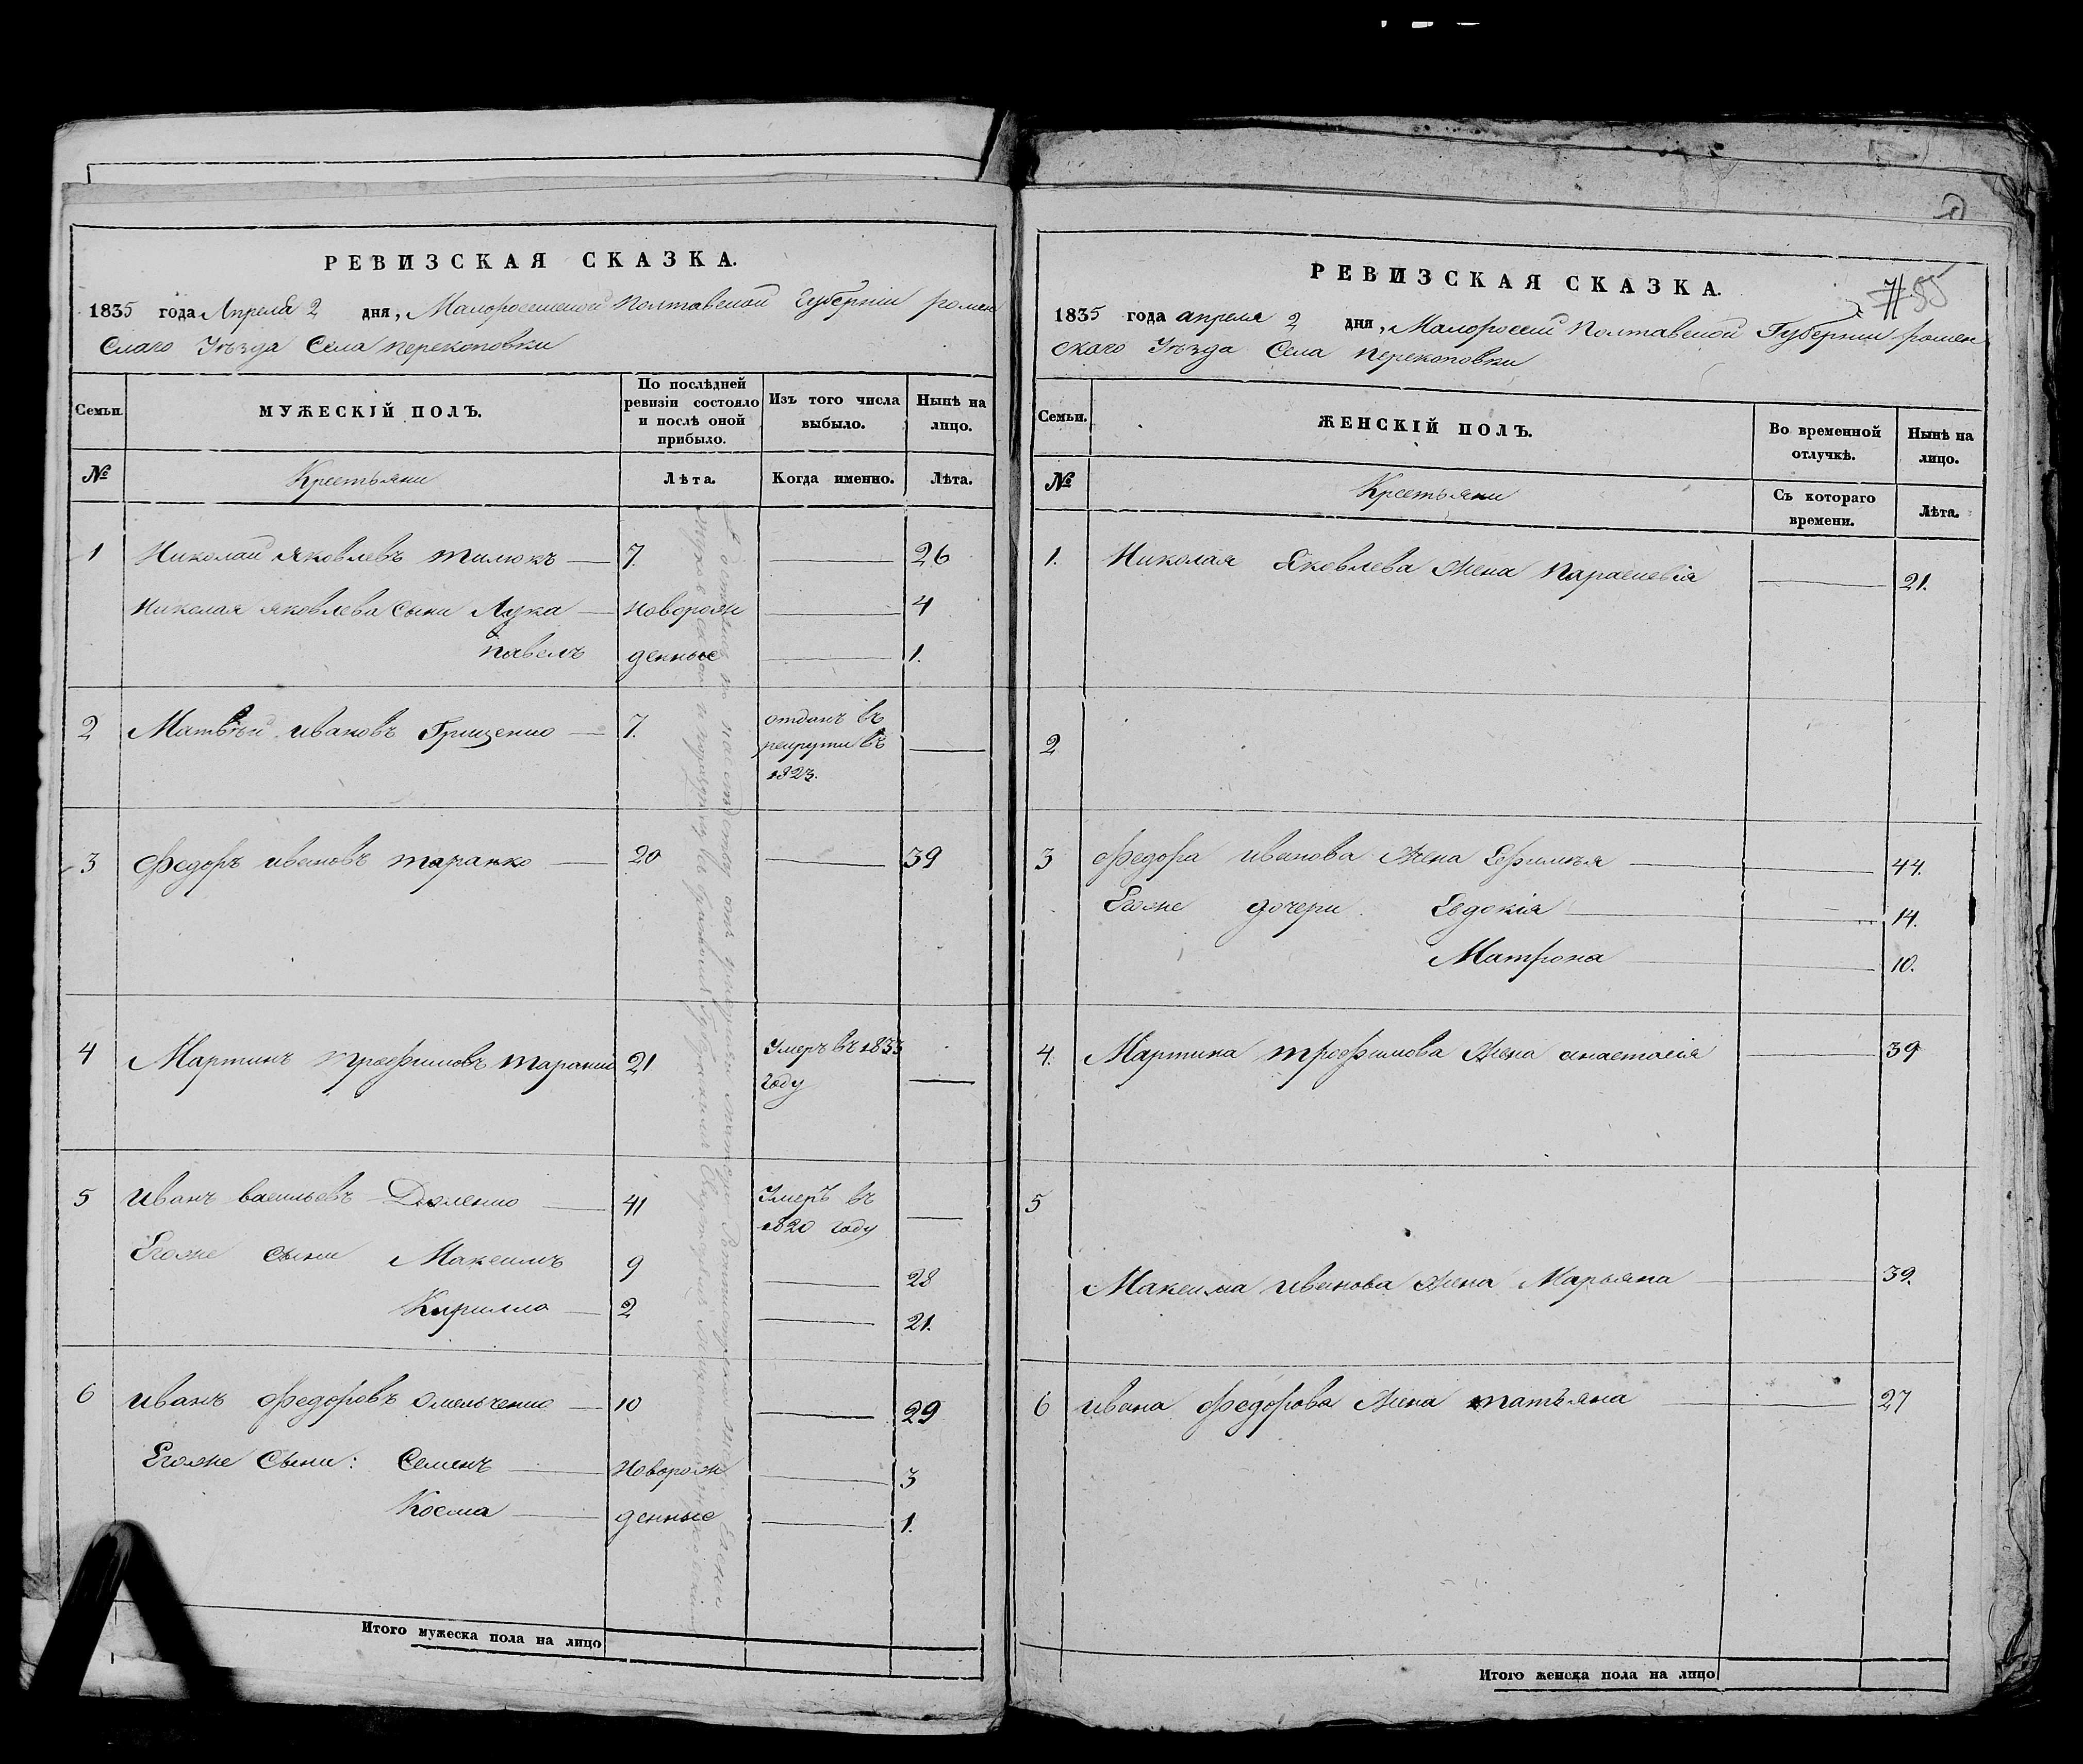 РЕВИЗСКАЯ СКАЗКА.
1835 года Апреля 2 дня, Малоросейской Полтавской Губерніи ромен
скаго Уѣзда Села перекоповки
Семьи.
МУЖЕСКІЙ ПОЛЪ.
По послѣдней ревизіи состояло и послѣ оной прибыло.
Изъ того числа выбыло.
Нынѣ на лицо.
№
Крестьяни
Лѣта.
Когда именно.
Лѣта.
1 Николай Яковлевъ 7. 26
Николая Яковлева сыни Лука Новорож 4
павелъ денные 1.
2 Матвѣй ивановъ Грищенко 7. отданъ въ
рекрути въ
1823.
3 Федоръ ивановъ таранко 20 39
4 Мартинъ трофимовъ таранко 21 Умеръ въ 1833
году
5 иванъ васильевъ 41 Умеръ въ
1820 году
Егоже сыни Максимъ 9 28
Кирилло 2 21.
6 иванъ Федоровъ Омельченко 10 29
Егоже Сыни: Семенъ Новорож 3
Косма денные 1.
Итого мужеска пола на лицо
РЕВИЗСКАЯ СКАЗКА.
1835 года апреля 2 дня, Малоросеій Полтавской Губерніи ромен
скаго Уѣзда Села перекоповки
Семьи.
ЖЕНСКІЙ ПОЛЪ.
Во временной отлучкѣ.
Нынѣ на лицо.
№
Крестьяни
Съ котораго времени.
Лѣта.
1. Николая Яковлева Жена Параскевія 21.
2
3 Федора иванова Жена Ефимія 44.
Егоже дочери Евдокія 14.
Матрона 10.
4. Мартина трофимова Жена анастасія 39
5
Максима иванова Жена Марьяна 39.
6 ивана Федорова Жена татьяна 27
Итого женска пола на лицо